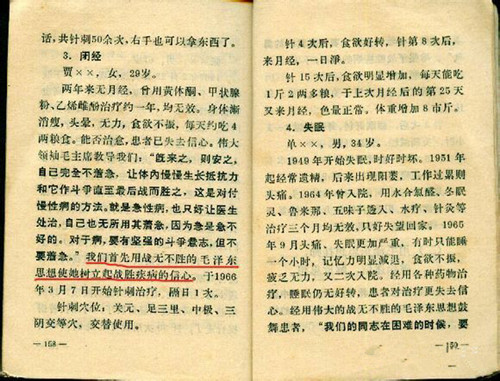 话，共针刺50余次，右手也可以拿东西了。
3. 闭经
贾××，女，29岁。
两年来无月经，曾用黄体酮、甲状腺
粉、乙烯雌酚治疗约一年，均无效。身体渐
消瘦，头晕，无力，食欲不振，每天约吃4
两粮食。能否治愈，患者已失去信心。伟大
领袖毛主席教导我们：“既来之，则安之，
自己完全不着急，让体内慢慢生长抵抗力
和它作斗争直至最后战而胜之，这是对付
慢性病的方法。就是急性病，也只好让医生
处治，自己也无所用其着急，因为急是急不
好的。对于病，要有坚强的斗争意志，但不
要着急。”我们首先用战无不胜的毛泽东
思想使她树立起战胜疾病的信心。于1966
年3月7日开始针刺治疗，隔日1次。
针刺穴位，关元、足三里、中极、三
阴交等穴，交替使用。
—158—
针4次后，食欲好转，针第8次后，
来月经，一日净。
针15次后，食欲明显增加，每天能吃
1斤2两多粮，于上次月经后的第25天
又来月经，色量正常，体重增加8市斤。
4. 失眠
单××，男，34岁。
1949年开始失眠，时好时坏。1951年
起经常遗精，后来出现阳萎，工作过累则
头痛。1964年曾入院，用水合氯醛、冬眠
灵、鲁米那、五味子透入、水疗、针灸等
治疗三个月均无效，只好失望回家。1965
年9月头痛、失眠更加严重，有时只能睡
一个小时，记忆力明显减退，食欲不振，
疲乏无力，又二次入院，经用各种药物治
疗，睡眠仍无好转，患者对治疗更失去信
心。经用伟大的战无不胜的毛泽东思想鼓
舞患者，“我们的同志在困难的时候，要